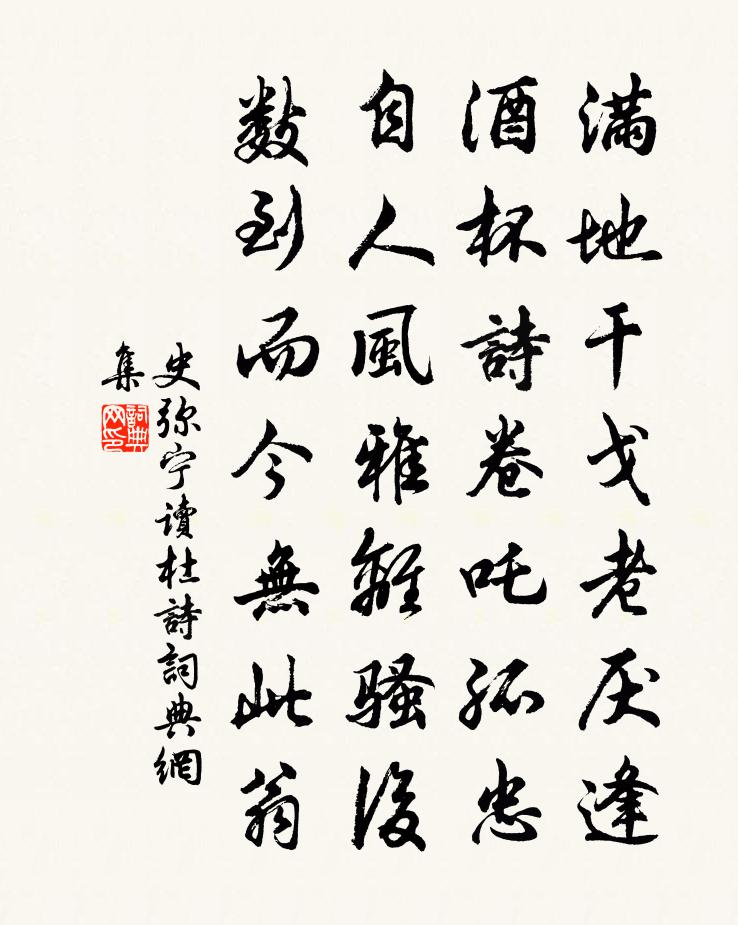 满地干戈老厌逢
酒杯詩卷吒孤忠
自人風雅離騷後
数到而今無此翁
史弥宁读杜詩詞典網
集
詞典网印